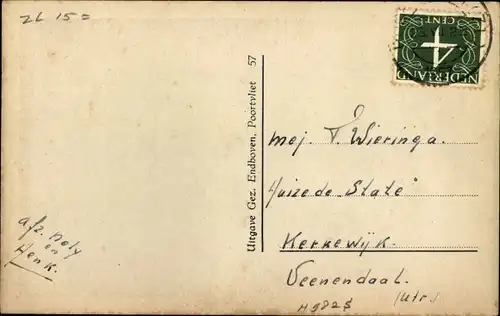 ZL 15=
NEDERLAND
4
CENT
Uitgave Gez. Endhoven, Poortvliet 57
Mej. T. Wieringa.
Huize de "State"
Kerkewijk.
Veenendaal.
(Utr.)
afz. Nely
en
Henk.
H9825